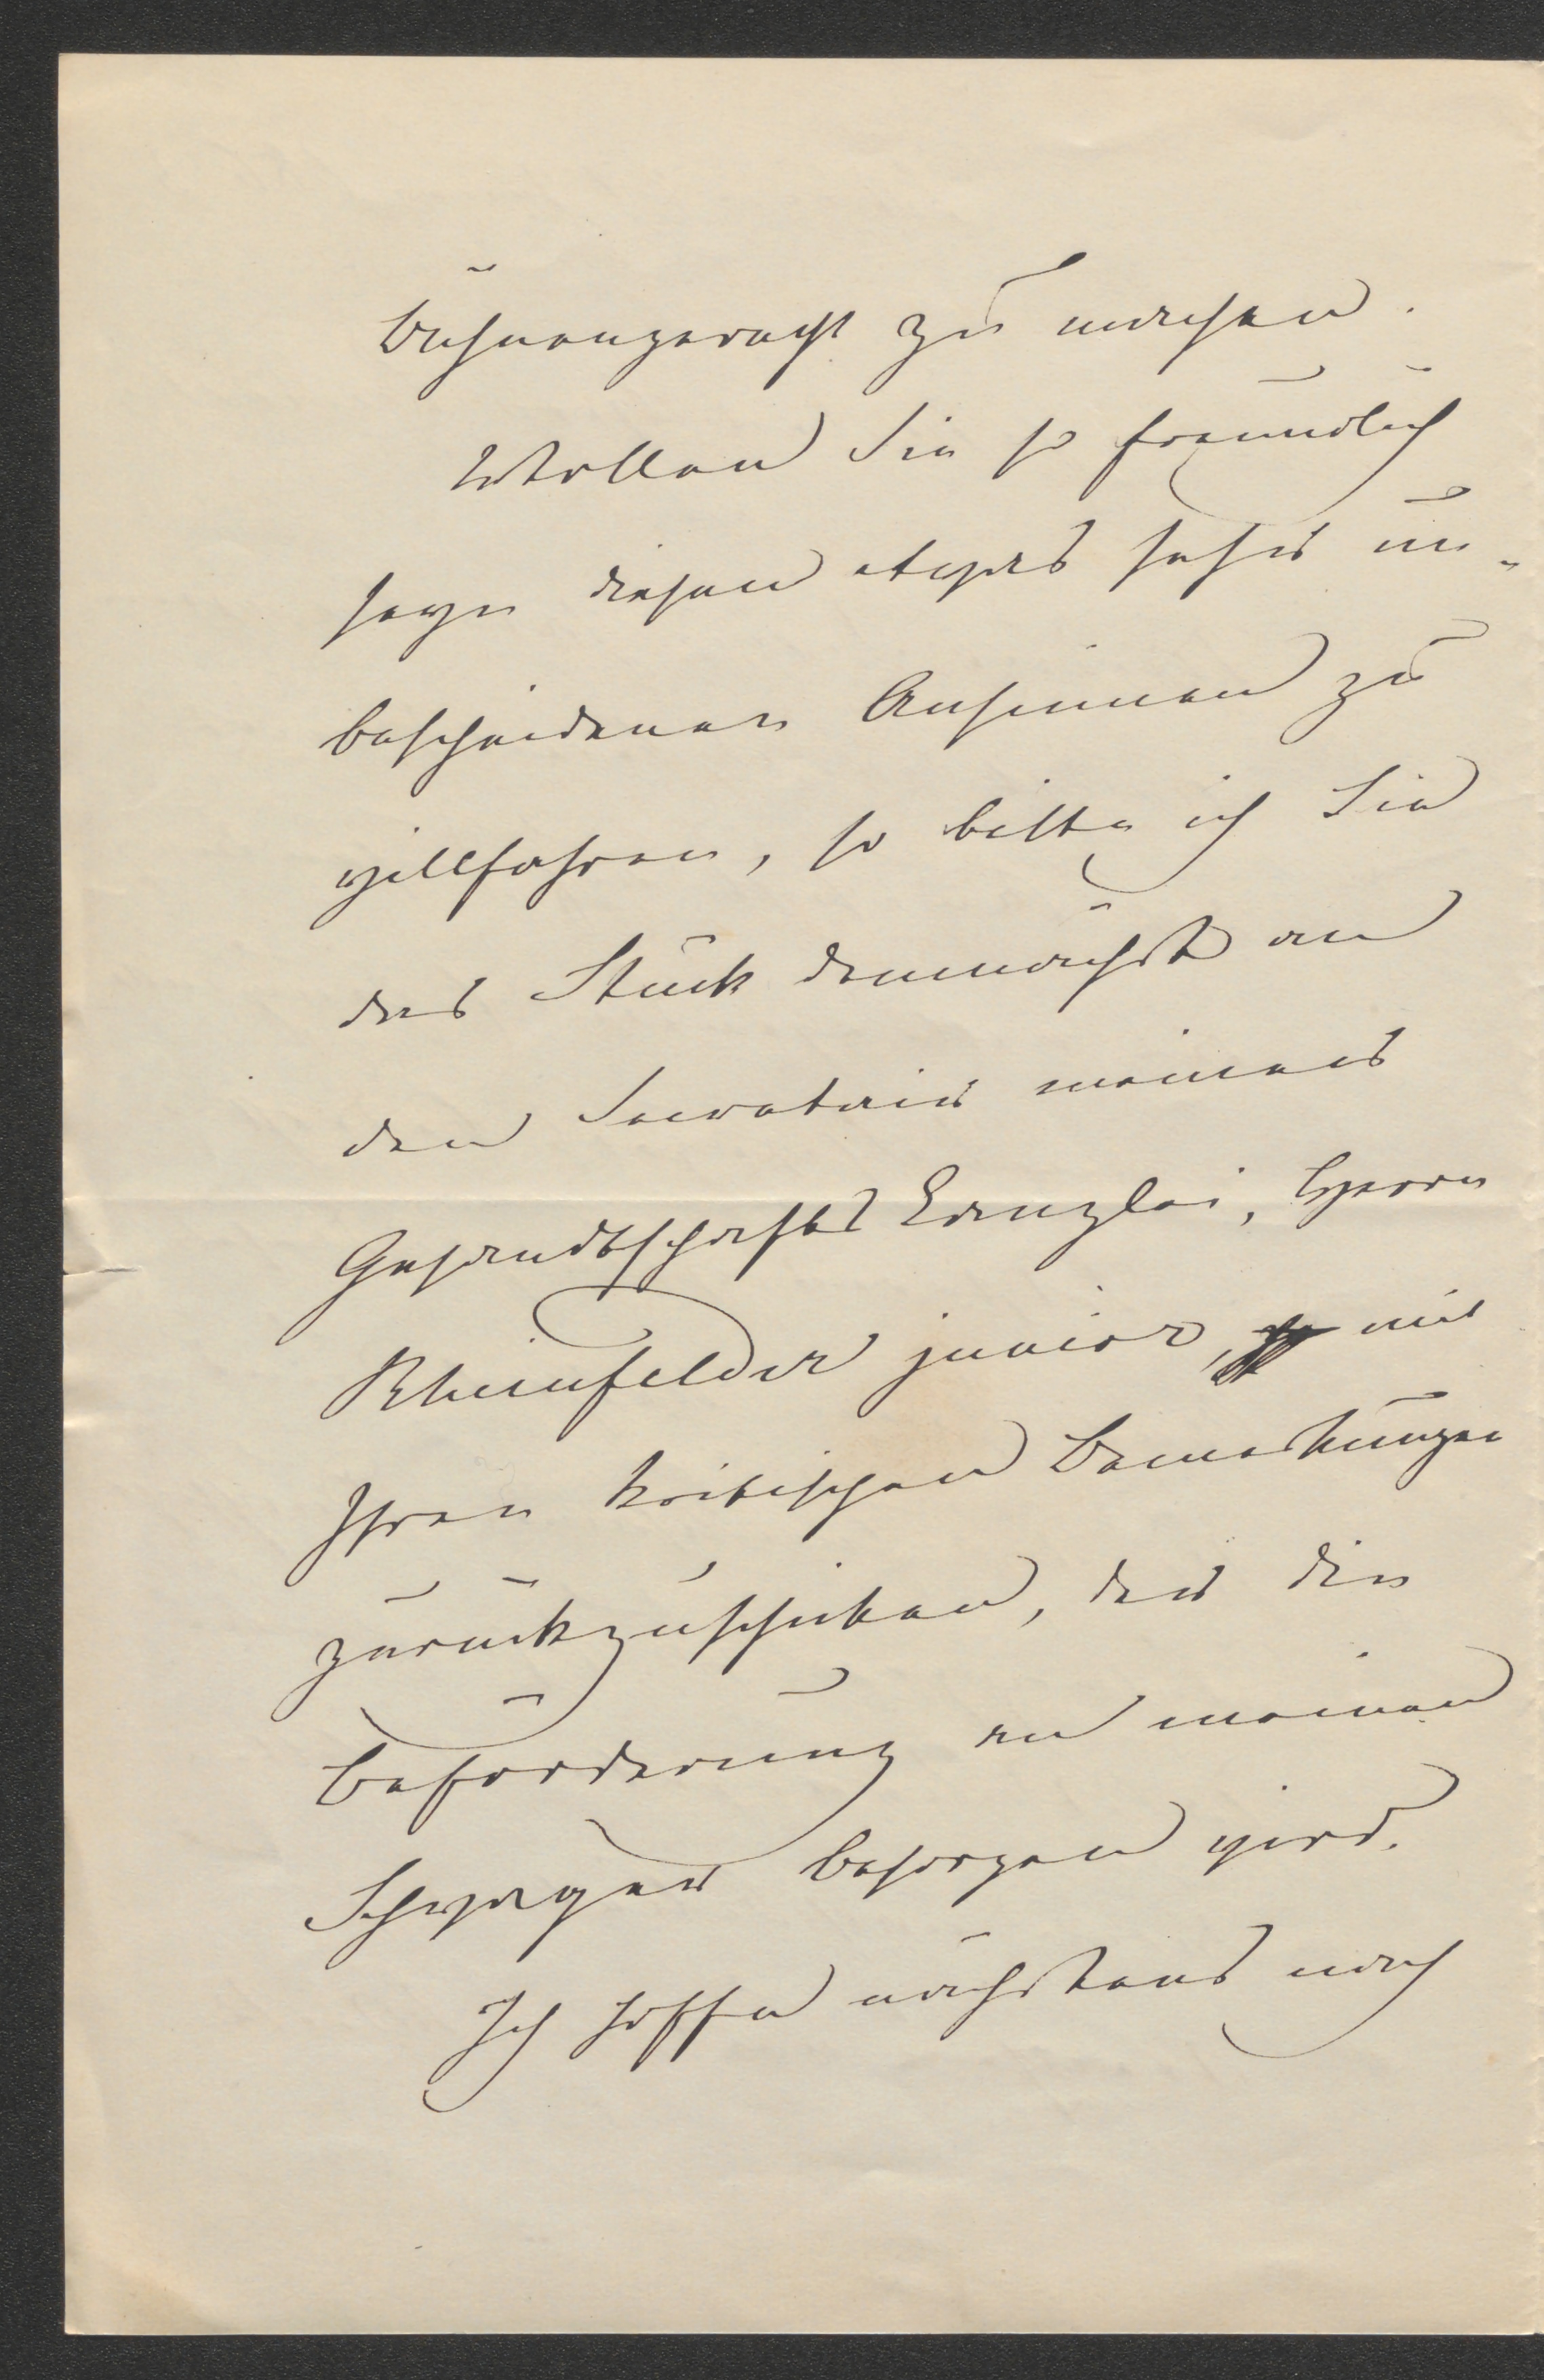 bühnengerecht zu machen.
Wollen Sie so freundlich
seyn diesem etwas sehr un-
bescheidenen Ansinnen zu
willfahren, so bitte ich Sie
das Stück demnächst an
den Secretair meiner
Gesandtschafts Canzlei, Herrn
Rheinfelder junior, mit
Ihren kritischen Bemerkungen
zurückzuschicken, der die
Beförderung an meinen
Schwager besorgen wird.
Ich hoffe nächstens nach